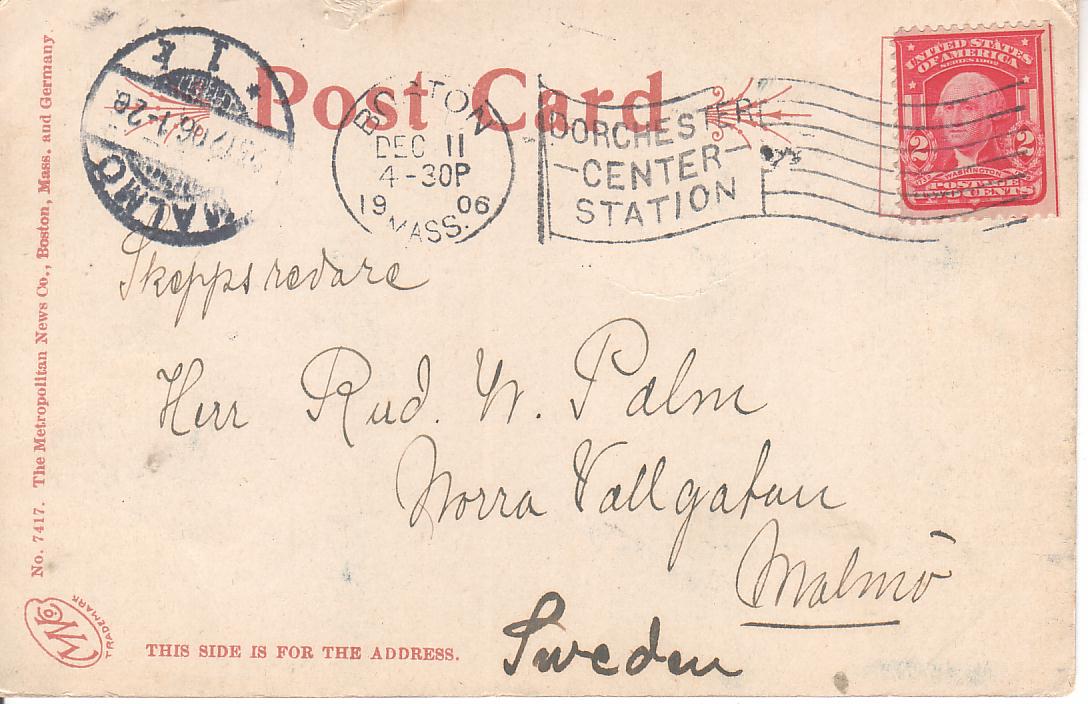 Post Card
BOSTON
DEC 11
4-30P
19 06
MASS.
DORCHESTER
CENTER
STATION
UNITED STATES
OF AMERICA
SERIES 1902
2 2
WASHINGTON
POSTAGE
TWO CENTS
MALMÖ
1
Skeppsredare
Herr Rud. W. Palm
Norra Vallgatan
Malmö
Sweden
THIS SIDE IS FOR THE ADDRESS.
No. 7417. The Metropolitan News Co., Boston, Mass. and Germany
TRADEMARK